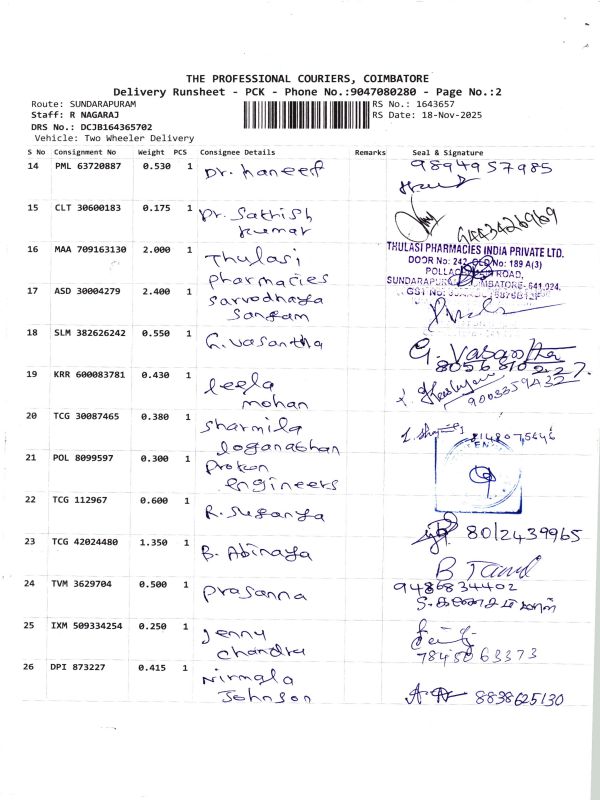 THE PROFESSIONAL COURIERS, COIMBATORE
Delivery Runsheet - PCK - Phone No.:9047080280 - Page No.:2
Route: SUNDARAPURAM RS No.: 1643657
Staff: R NAGARAJ RS Date: 18-Nov-2025
DRS No.: DCJB164365702
Vehicle: Two Wheeler Delivery
S No Consignment No Weight PCS Consignee Details Remarks Seal & Signature
14 PML 63720887 0.530 1 Dr. haneef 9894957985
15 CLT 30600183 0.175 1 Dr. Sathish
kumar
16 MAA 709163130 2.000 1 Thulasi
pharmacies
THULASI PHARMACIES INDIA PRIVATE LTD.
DOOR No: 242, OLD No: 189 A(3)
ROAD,
17 ASD 30004279 2.400 1 Sarvodhaya
Sangam
18 SLM 382626242 0.550 1 G. Vasantha G. Vasantha
19 KRR 600083781 0.430 1 leela
mohan
20 TCG 30087465 0.380 1 Sharmila
loganathan
21 POL 8099597 0.300 1 Proton
engineers
22 TCG 112967 0.600 1 R. Suganya 8012439965
23 TCG 42024480 1.350 1 B. Abinaya
24 TVM 3629704 0.500 1 Prasanna 9486834402
25 IXM 509334254 0.250 1 Jenny
chandra
26 DPI 873227 0.415 1 Nirmala
Johnson 8838625130